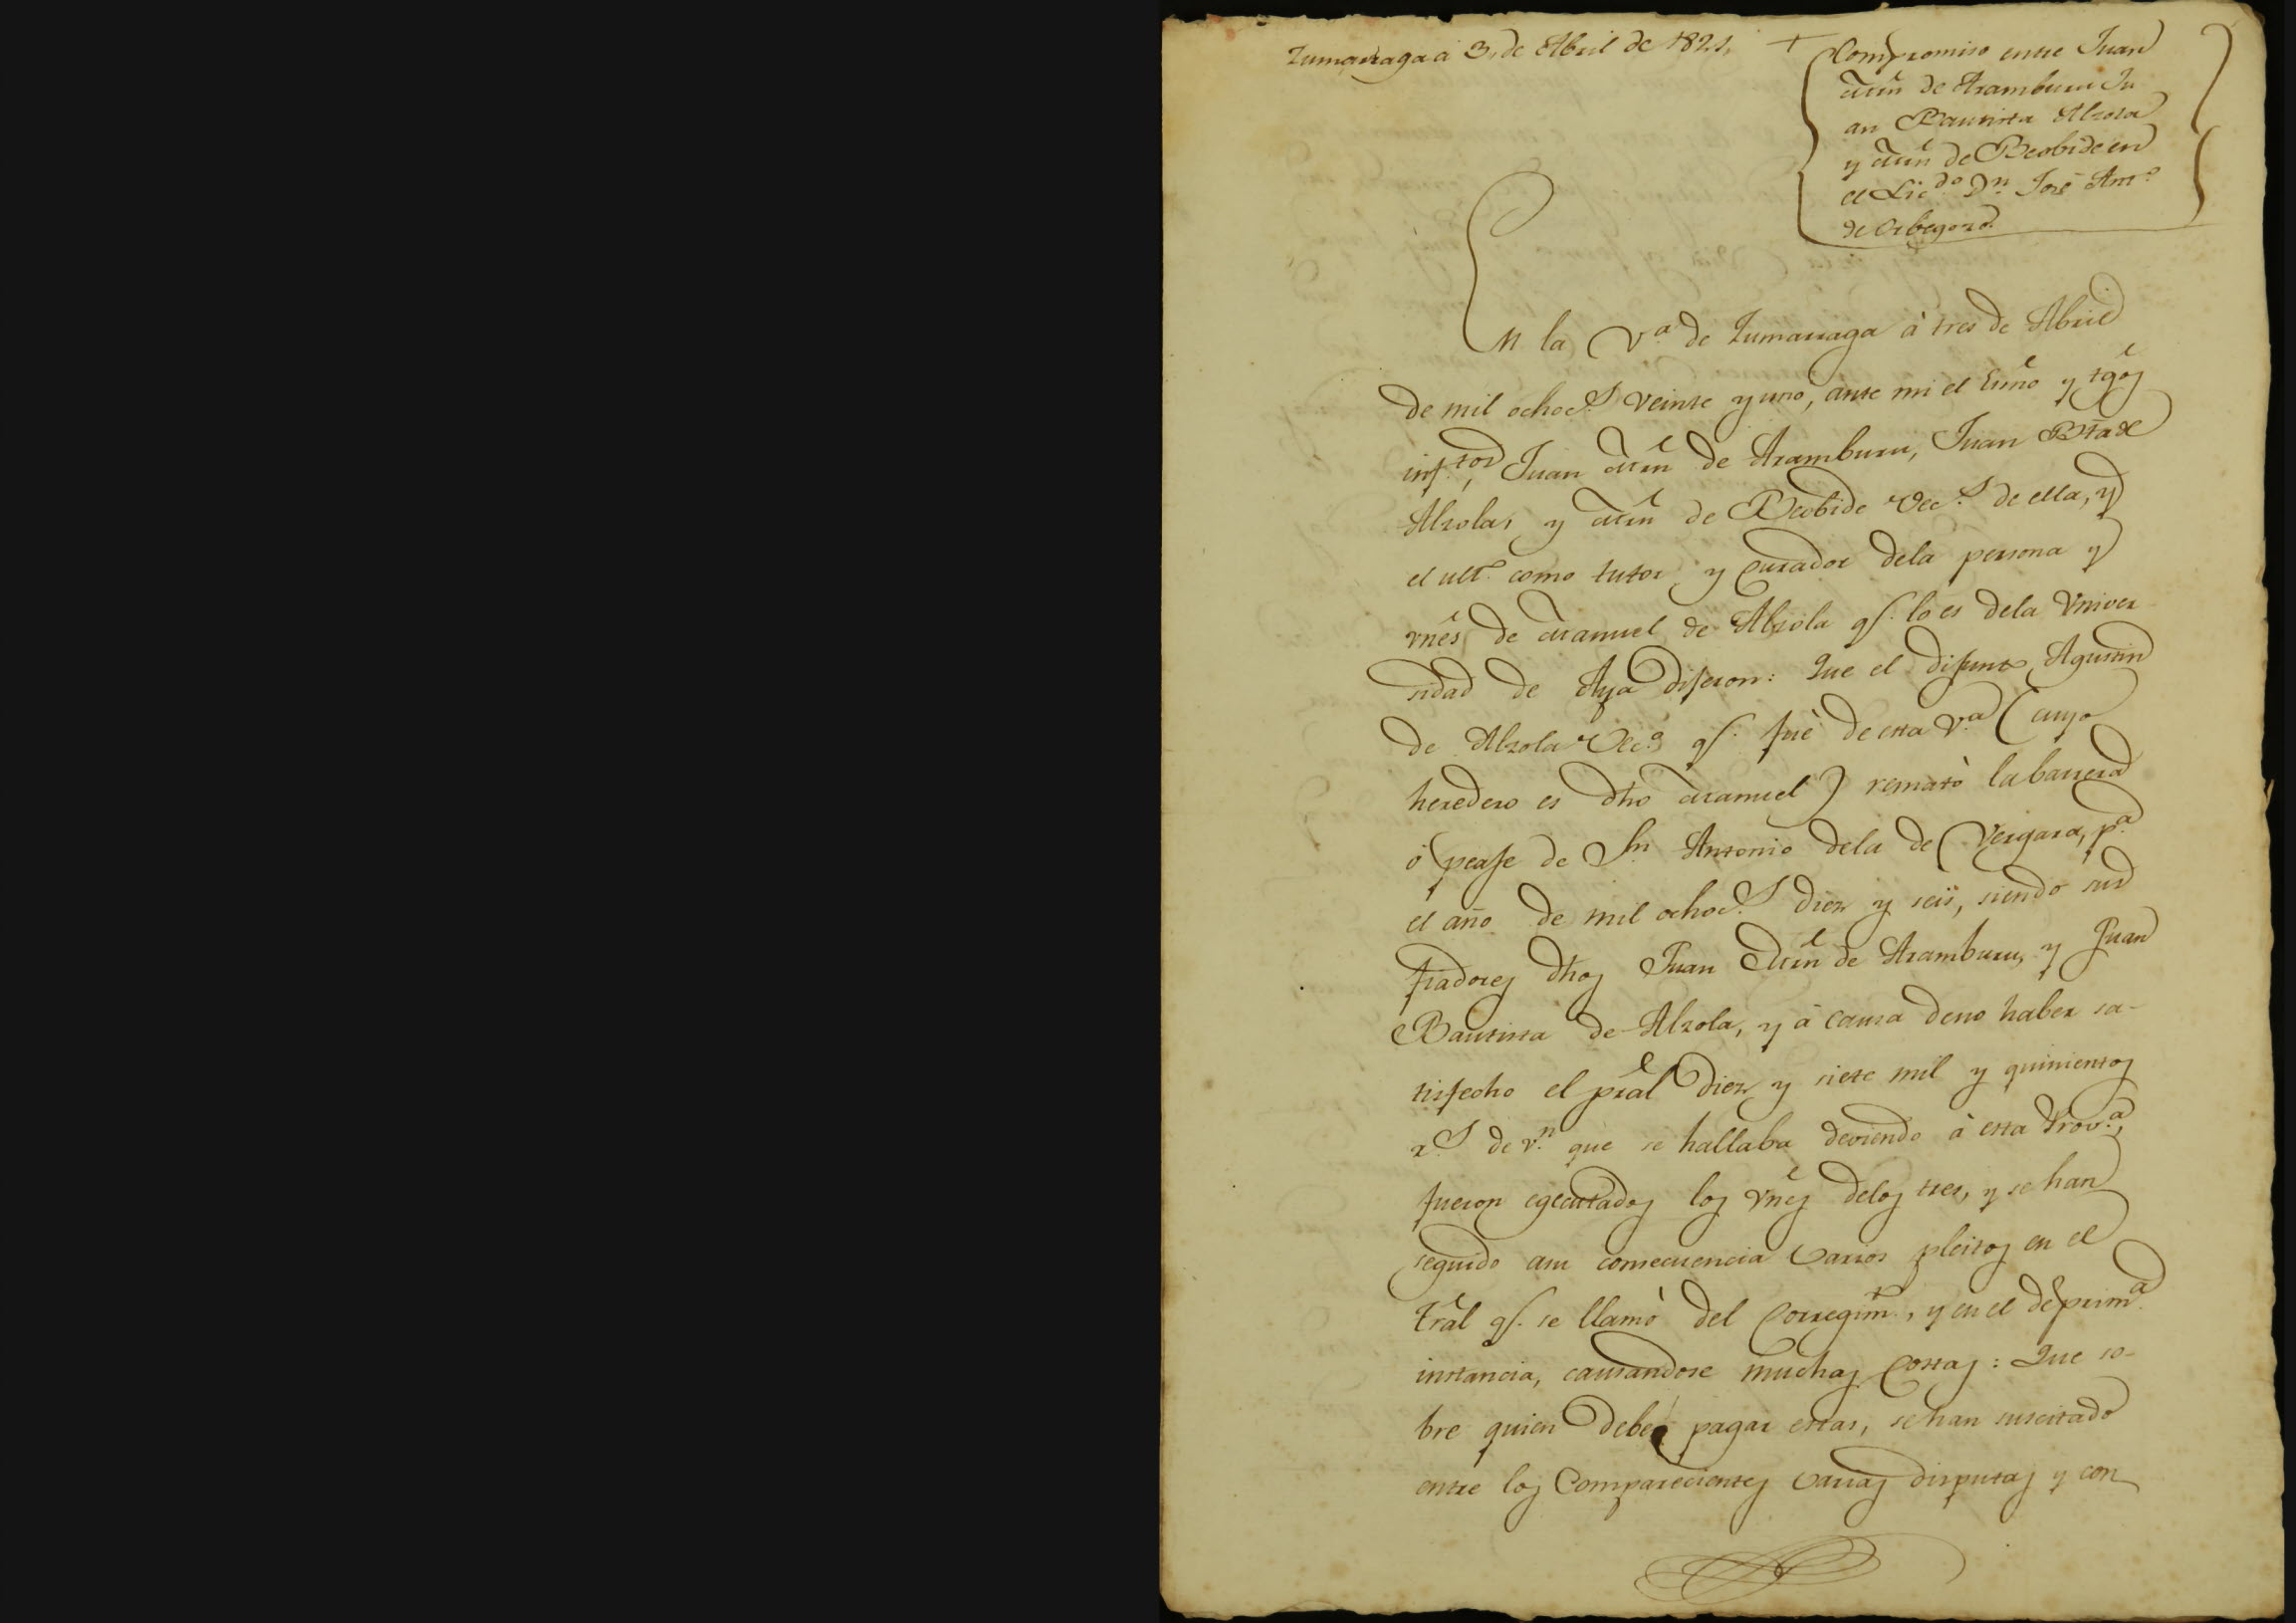 Zumarraga á 3, de Abril de 1821,
+
Compromiso entre Juan
Mrn de Aramburu Ju
an Bautista Alzola
y Mrn de Beobide en
el Licdo Dn José Anto
de Orbegozo.
En la Va de Zumarraga á tres de Abril
de mil ochocs veinte y uno, ante mi el Esno y tgos
inftos, Juan Mrn de Aramburu, Juan Bta de
Alzola, y Mrn de Beobide vecs de ella, y
el ulto como tutor y Curador dela persona y
vnes de Manuel de Alzola qe lo es dela Vniver
sidad de Aya Dijeron: Que el difunto Agustin
de Alzola veco qe fué de esta Va (cuyo
heredero es dho Manuel) remató la barrera
ó peaje de Sn Antonio dela de Vergara, pa
el año de mil ochocs diez y seis, siendo sus
fiadores dhos Juan Mrn de Aramburu, y Juan
Bautista de Alzola, y á causa deno haber sa-
tisfecho el pral diez y siete mil y quinientos
rs de vn que se hallaba deviendo á esta Prova,
fueron egecutados los vnes delos tres, y se han
seguido asu consecuencia varios pleitos en el
tral qe se llamó del Corregimto, y en el de prima
instancia, causandose muchas costas: Que so-
bre quien deba pagar estas, sehan suscitado
entre los Comparecientes varias disputas y con